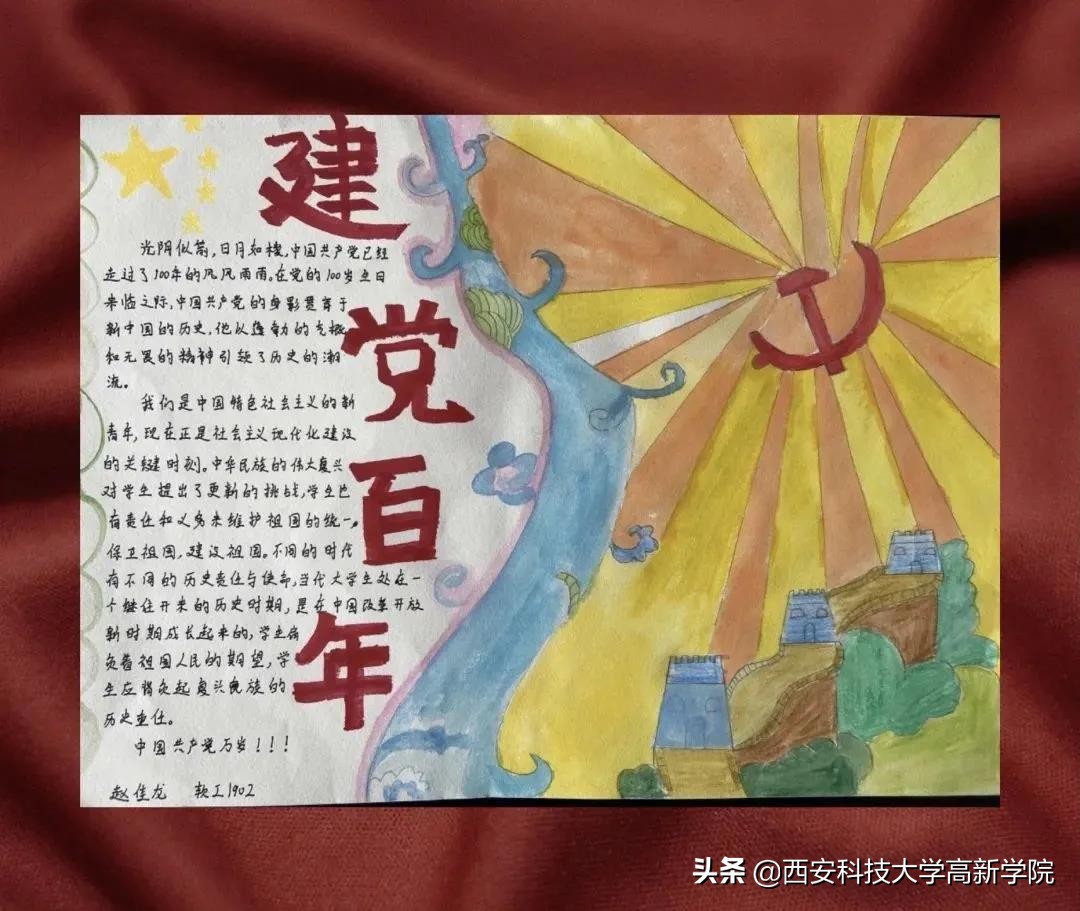 建党百年
光阴似箭,日月如梭,中国共产党已经
走过了100年的风风雨雨。在党的100岁生日
来临之际,中国共产党的身影贯穿于
新中国的历史,他以雄勃的气概
和无畏的精神引领了历史的潮
流。
我们是中国特色社会主义的新
青年,现在正是社会主义现代化建设
的关键时刻。中华民族的伟大复兴
对学生提出了更新的挑战,学生也
有责任和义务来维护祖国的统一,
保卫祖国,建设祖国。不同的时代
有不同的历史责任与使命,当代大学生处在一
个继往开来的历史时期,是在中国改革开放
新时期成长起来的,学生肩
负着祖国人民的期望,学
生应肩负起复兴民族的
历史重任。
中国共产党万岁!!!
赵佳龙 软工1902
头条 @西安科技大学高新学院